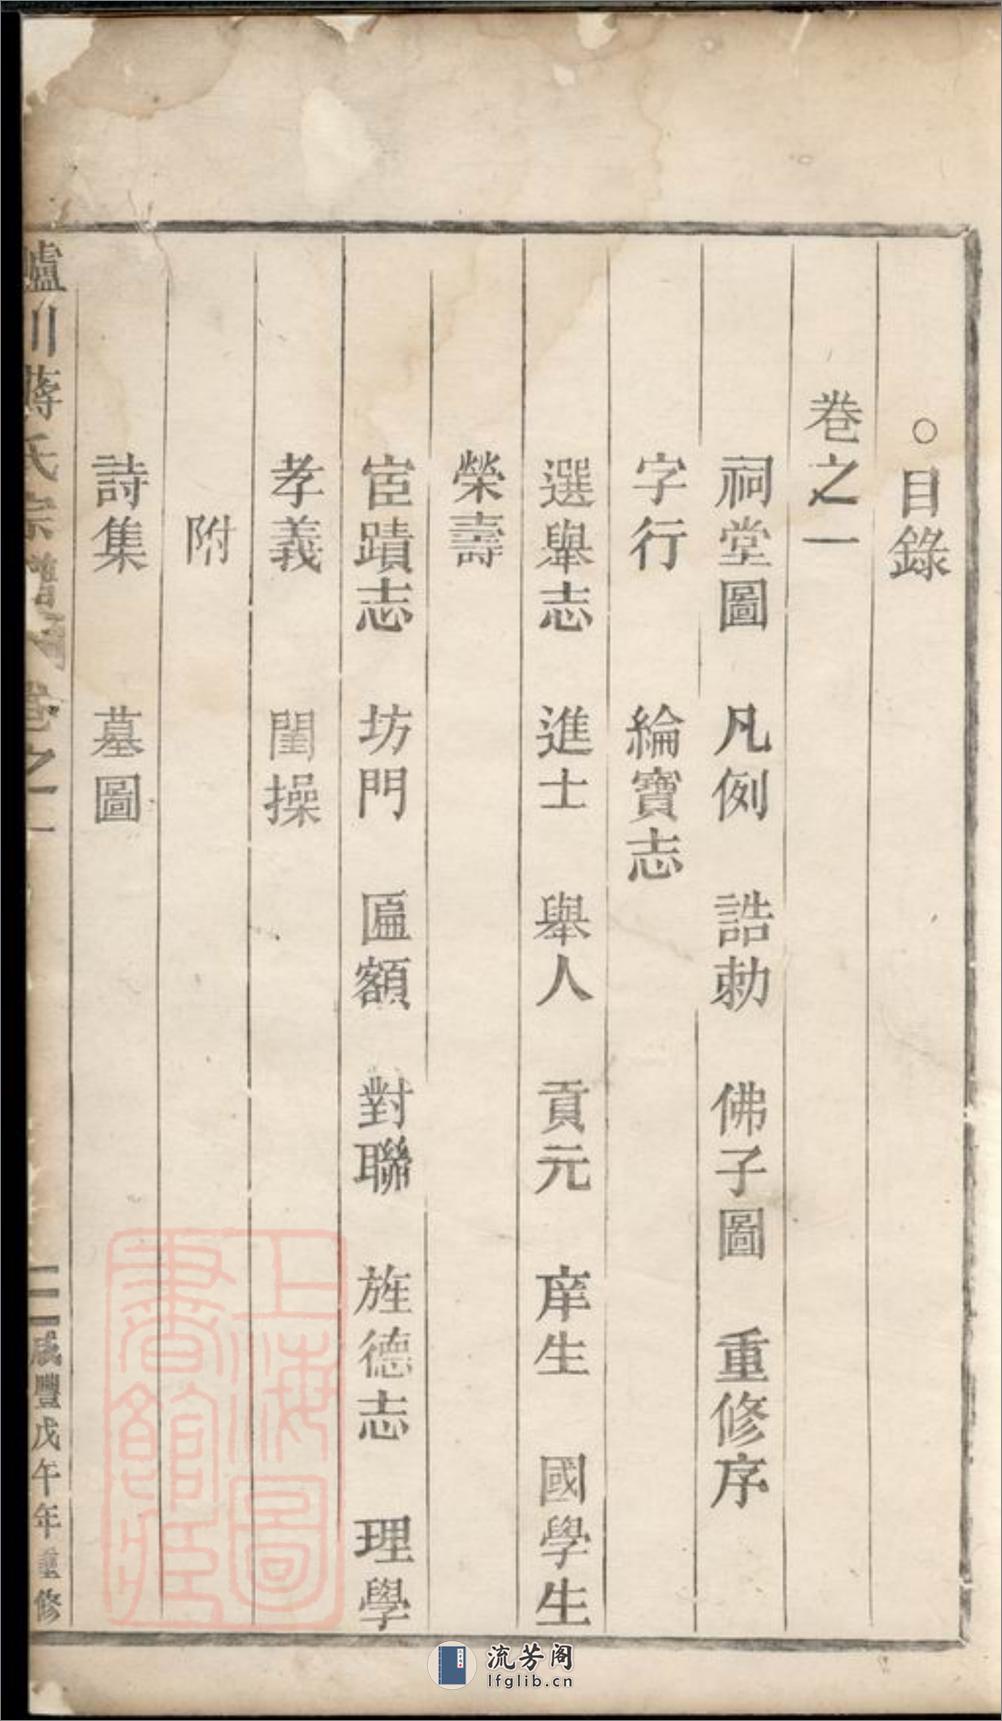 ○目錄
卷之一
祠堂圖　凡例　誥勅　佛子圖　重修序
字行　綸寶志
選舉志　進士　舉人　貢元　庠生　國學生
榮壽
宦蹟志　坊門　匾額　對聯　旌德志　理學
孝義　閨操
附
詩集　墓圖
川蔣氏宗譜　卷之一　二　咸豐戊午年重修
上海圖書館藏
流芳阁
lfglib.cn